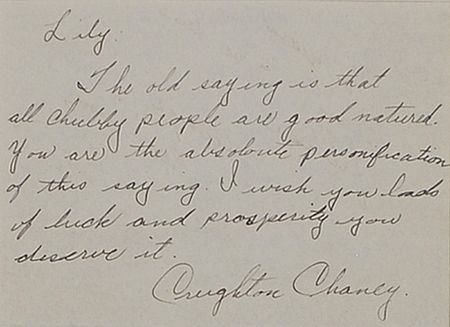 Lily:
The old saying is that
all chubby people are good natured.
You are the absolute personification
of this saying. I wish you loads
of luck and prosperity you
deserve it.
Creighton Chaney.